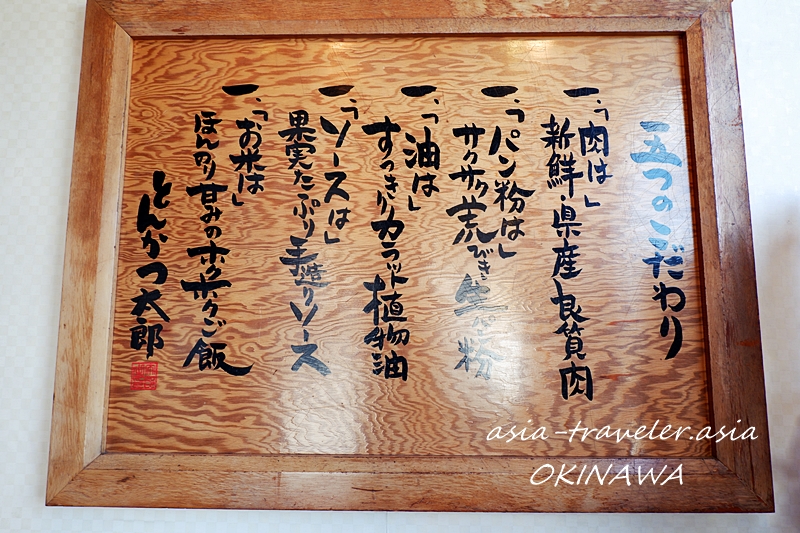 五つのこだわり
一、「肉は」
新鮮・県産良質肉
一、「パン粉は」
サクサク荒びき生パン粉
一、「油は」
すっきりカラット植物油
一、「ソースは」
果実たっぷり手造りソース
一、「お米は」
ほんのり甘みのホクホクご飯
とんかつ太郎
asia-traveler.asia
OKINAWA